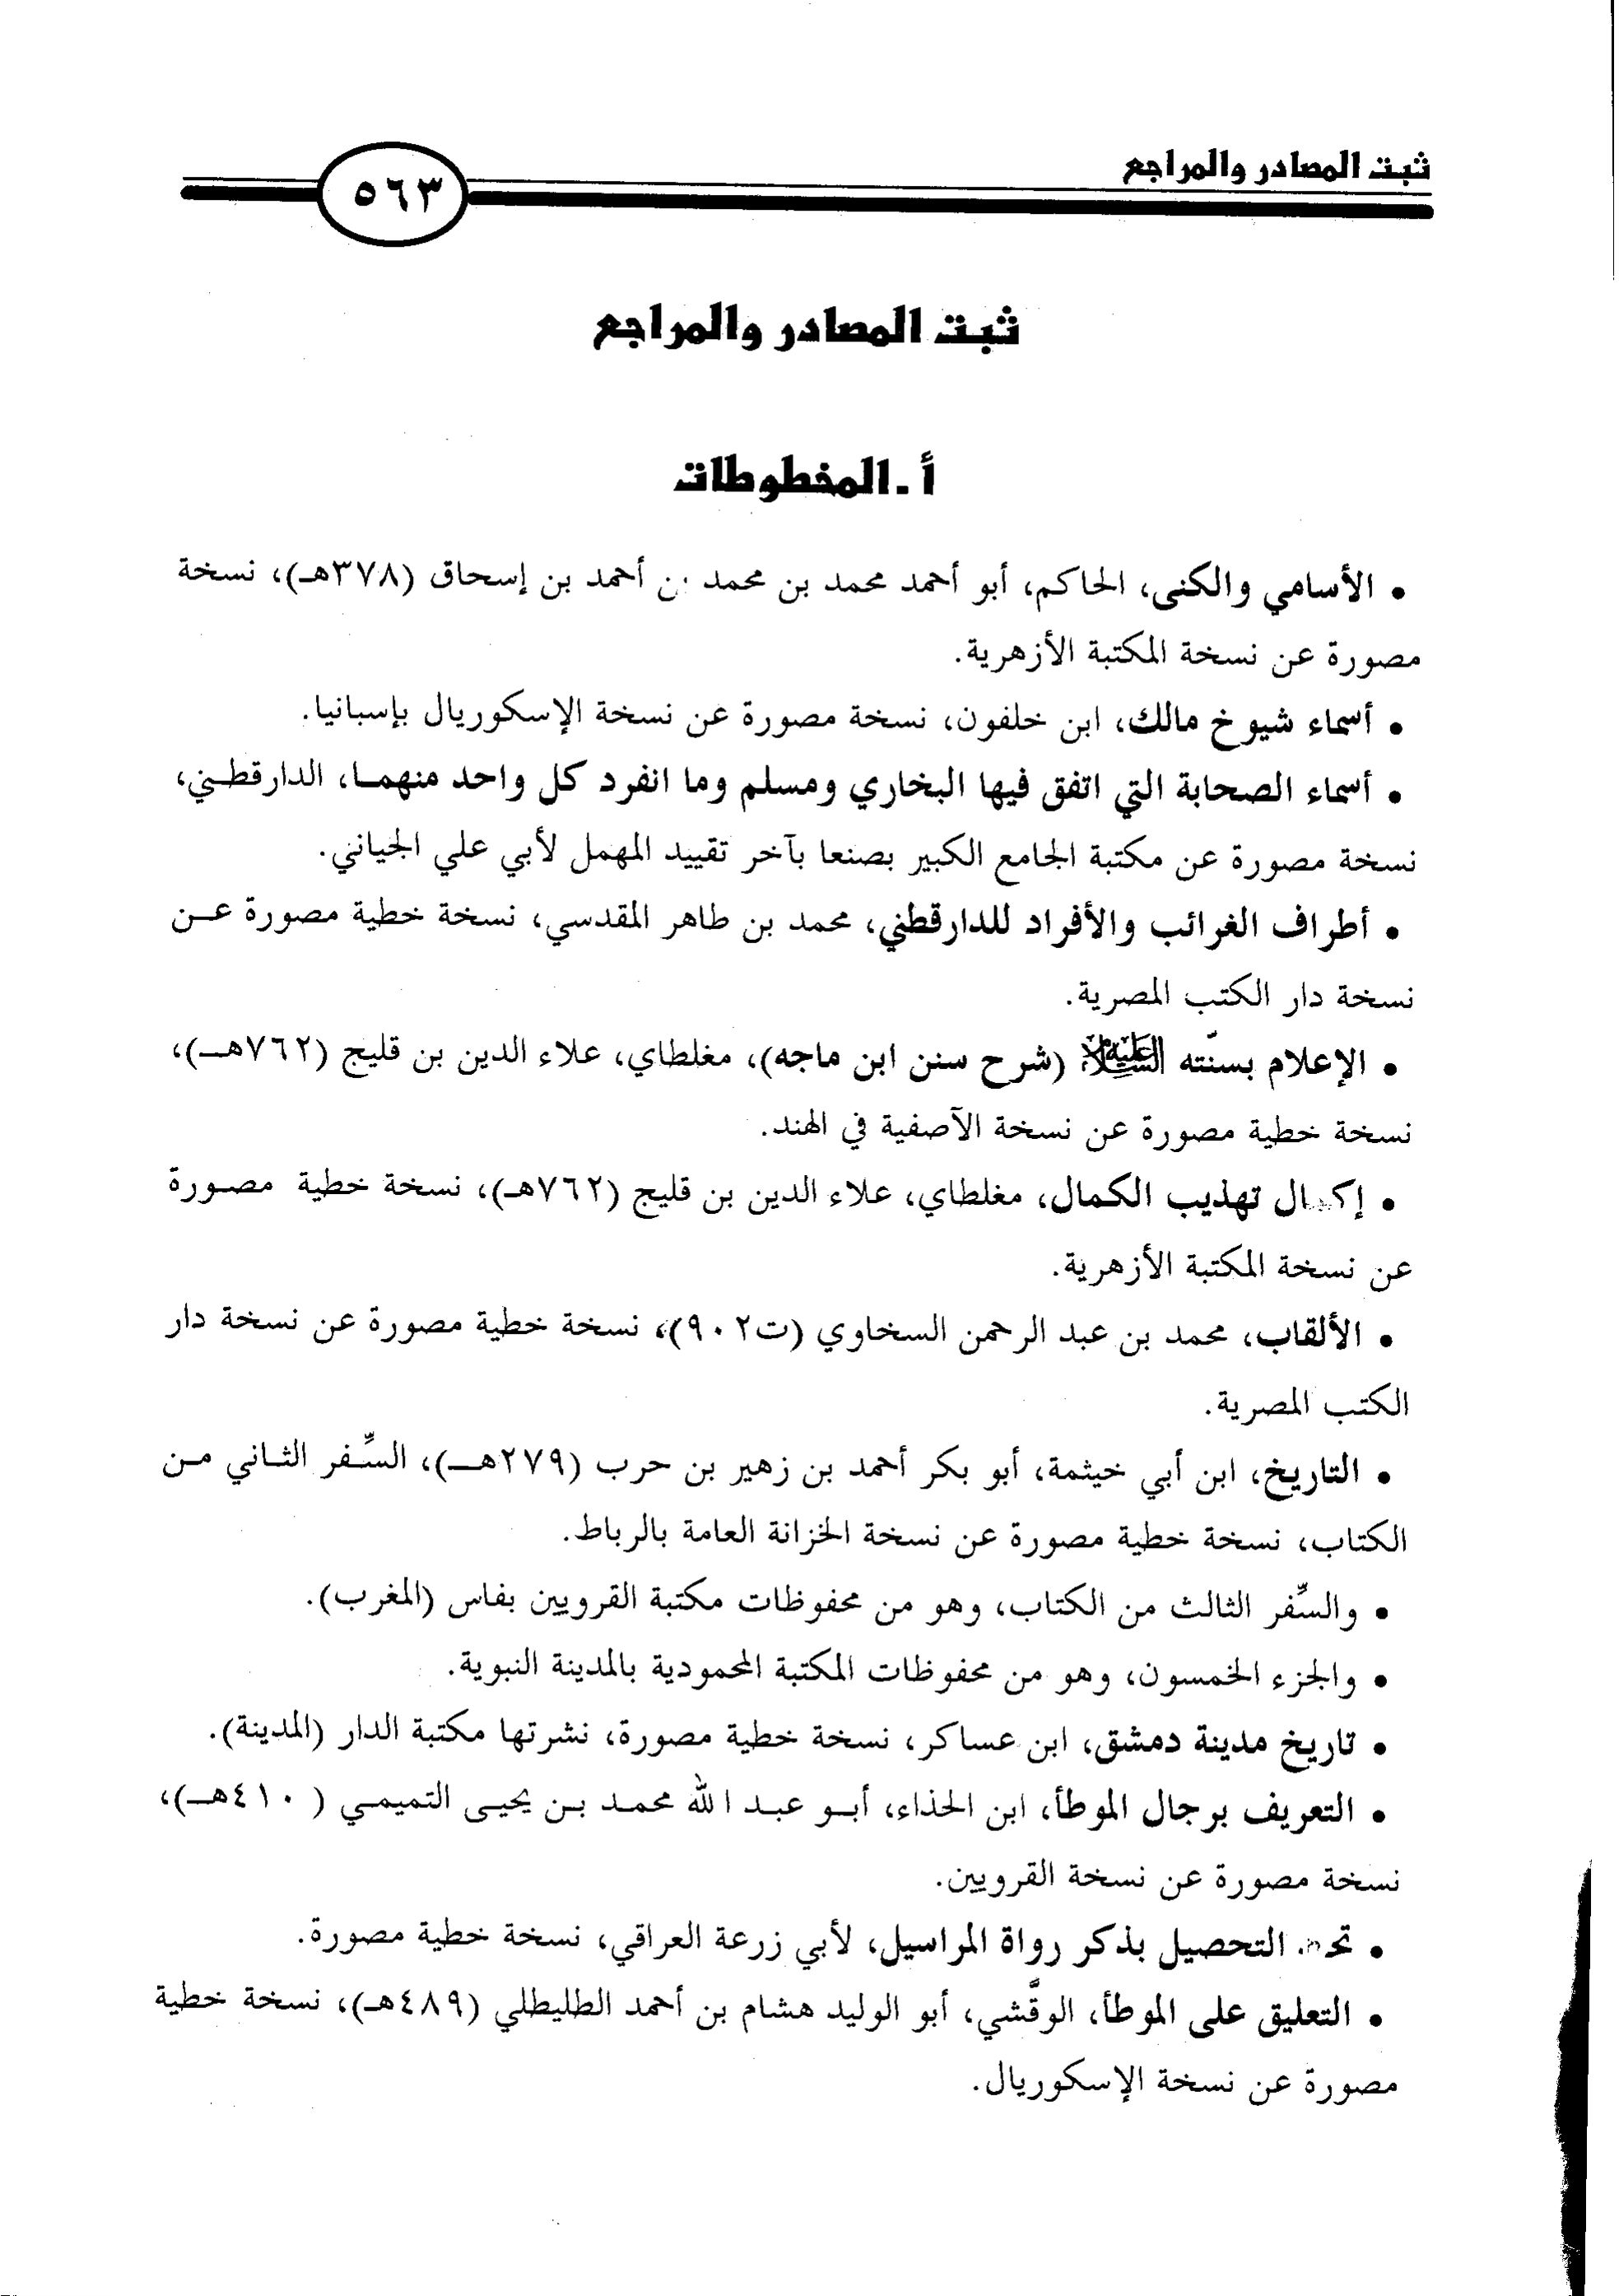 ثبت المصادر والمراجع
٥٦٣
ثبت المصادر والمراجع
أ - المخطوطات
• الأسامي والكنى، الحاكم، أبو أحمد محمد بن محمد بن أحمد بن إسحاق (٣٧٨هـ)، نسخة
مصورة عن نسخة المكتبة الأزهرية.
• أسماء شيوخ مالك، ابن خلفون، نسخة مصورة عن نسخة الإسكوريال بإسبانيا.
• أسماء الصحابة التي اتفق فيها البخاري ومسلم وما انفرد كل واحد منهما، الدارقطني،
نسخة مصورة عن مكتبة الجامع الكبير بصنعا بآخر تقييد المهمل لأبي علي الجياني.
• أطراف الغرائب والأفراد للدارقطني، محمد بن طاهر المقدسي، نسخة خطية مصورة عن
نسخة دار الكتب المصرية.
• الإعلام بسنّته عليه السلام (شرح سنن ابن ماجه)، مغلطاي، علاء الدين بن قليج (٧٦٢هـ)،
نسخة خطية مصورة عن نسخة الآصفية في الهند.
• إكمال تهذيب الكمال، مغلطاي، علاء الدين بن قليج (٧٦٢هـ)، نسخة خطية مصورة
عن نسخة المكتبة الأزهرية.
• الألقاب، محمد بن عبد الرحمن السخاوي (ت٩٠٢)، نسخة خطية مصورة عن نسخة دار
الكتب المصرية.
• التاريخ، ابن أبي خيثمة، أبو بكر أحمد بن زهير بن حرب (٢٧٩هـ)، السِّفر الثاني من
الكتاب، نسخة خطية مصورة عن نسخة الخزانة العامة بالرباط.
• والسِّفر الثالث من الكتاب، وهو من محفوظات مكتبة القرويين بفاس (المغرب).
• والجزء الخمسون، وهو من محفوظات المكتبة المحمودية بالمدينة النبوية.
• تاريخ مدينة دمشق، ابن عساكر، نسخة خطية مصورة، نشرتها مكتبة الدار (المدينة).
• التعريف برجال الموطأ، ابن الحذاء، أبو عبد الله محمد بن يحيى التميمي (٤١٠هـ)،
نسخة مصورة عن نسخة القرويين.
• التحصيل بذكر رواة المراسيل، لأبي زرعة العراقي، نسخة خطية مصورة.
• التعليق على الموطأ، الوقَّشي، أبو الوليد هشام بن أحمد الطليطلي (٤٨٩هـ)، نسخة خطية
مصورة عن نسخة الإسكوريال.